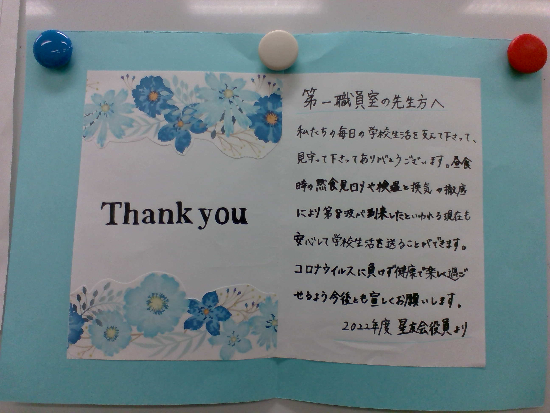 Thank you
第一職員室の先生方へ
私たちの毎日の学校生活を支えて下さって、
見守って下さってありがとうございます。昼食
時の黙食見回りや検温と換気の徹底
により第8波が到来したといわれる現在も
安心して学校生活を送ることができます。
コロナウイルスに負けず健康で楽しく過ご
せるよう今後とも宜しくお願いします。
2022年度 星友会役員より